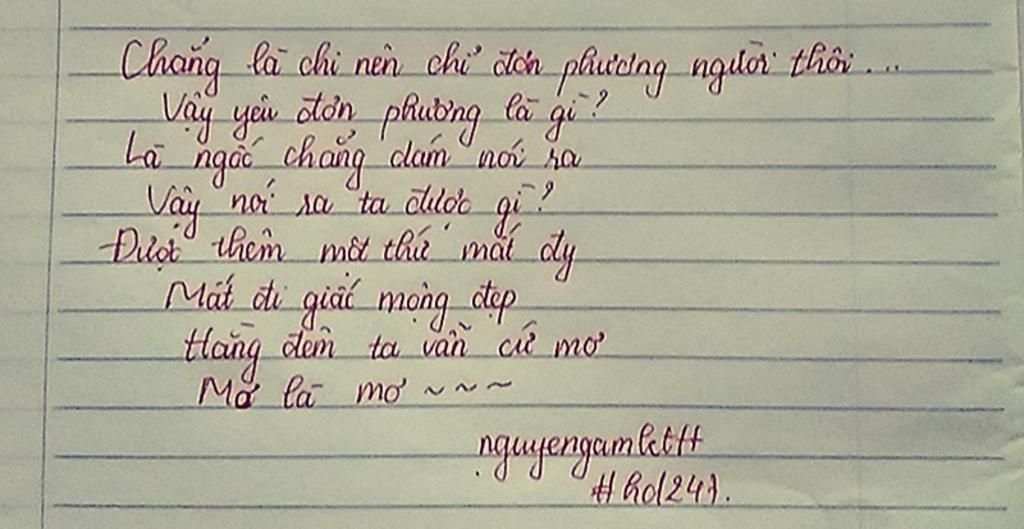 Chẳng là chi nên chỉ đơn phương người thôi...
Vậy yêu đơn phương là gì?
Là ngốc chẳng dám nói ra
Vậy nói ra ta được gì?
Được thêm một thứ mất đy
Mất đi giấc mộng đẹp
Hằng đêm ta vẫn cứ mơ
Mơ là mơ ~~~